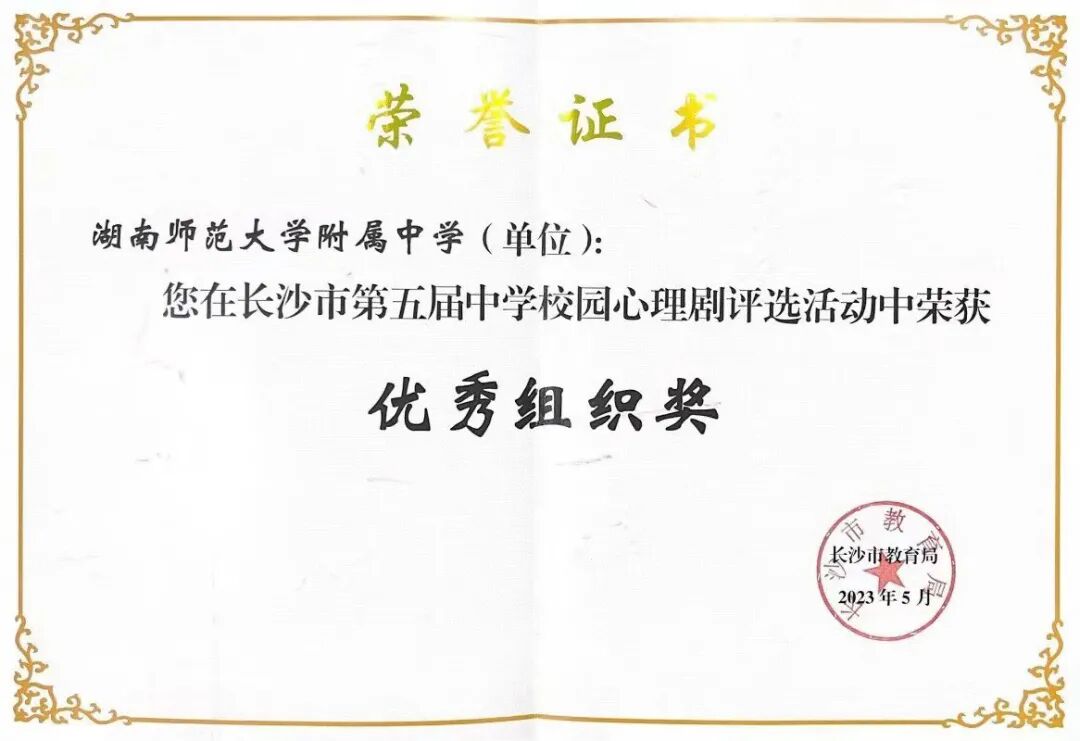 荣誉证书
湖南师范大学附属中学（单位）：
您在长沙市第五届中学校园心理剧评选活动中荣获
优秀组织奖
长沙市教育局
长沙市教育局
2023年5月